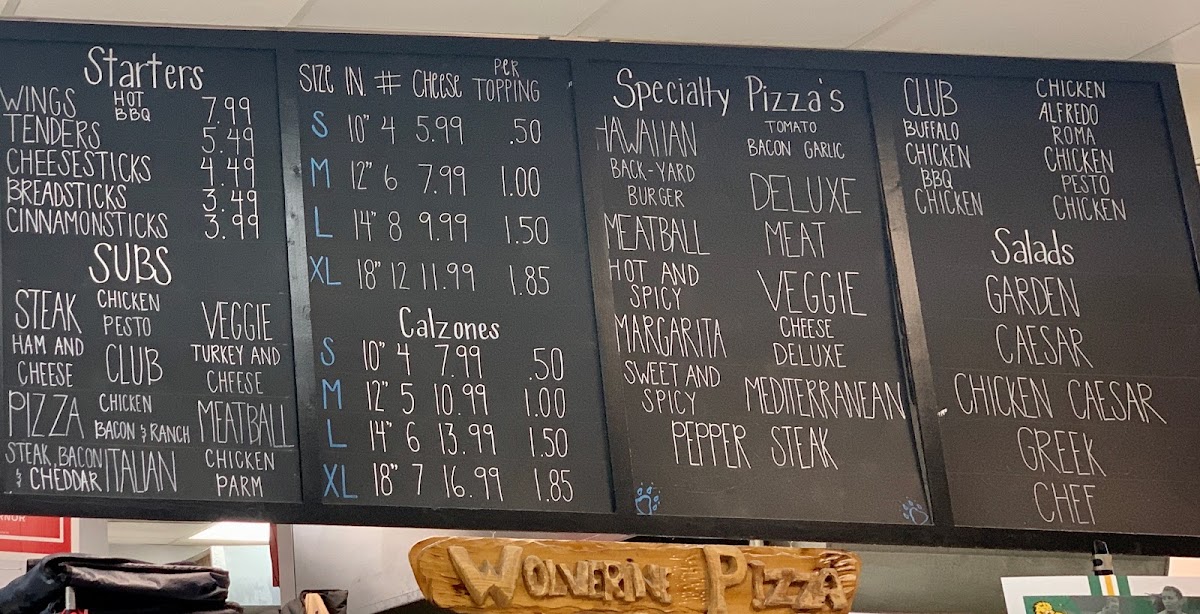 Starters
WINGS HOT BBQ 7.99
TENDERS 5.49
CHEESESTICKS 4.49
BREADSTICKS 3.49
CINNAMONSTICKS 3.99
SUBS
STEAK
HAM AND
CHEESE
PIZZA
STEAK, BACON
& CHEDDAR
CHICKEN
PESTO
CLUB
CHICKEN
BACON & RANCH
ITALIAN
VEGGIE
TURKEY AND
CHEESE
MEATBALL
CHICKEN
PARM
SIZE IN. # CHEESE PER TOPPING
S 10" 4 5.99 .50
M 12" 6 7.99 1.00
L 14" 8 9.99 1.50
XL 18" 12 11.99 1.85
Calzones
S 10" 4 7.99 .50
M 12" 5 10.99 1.00
L 14" 6 13.99 1.50
XL 18" 7 16.99 1.85
Specialty Pizza's
HAWAIIAN
BACK-YARD
BURGER
MEATBALL
HOT AND
SPICY
MARGARITA
SWEET AND
SPICY
TOMATO
BACON GARLIC
DELUXE
MEAT
VEGGIE
CHEESE
DELUXE
MEDITERRANEAN
PEPPER STEAK
CLUB
BUFFALO
CHICKEN
BBQ
CHICKEN
CHICKEN
ALFREDO
ROMA
CHICKEN
PESTO
CHICKEN
Salads
GARDEN
CAESAR
CHICKEN CAESAR
GREEK
CHEF
WOLVERINE PIZZA